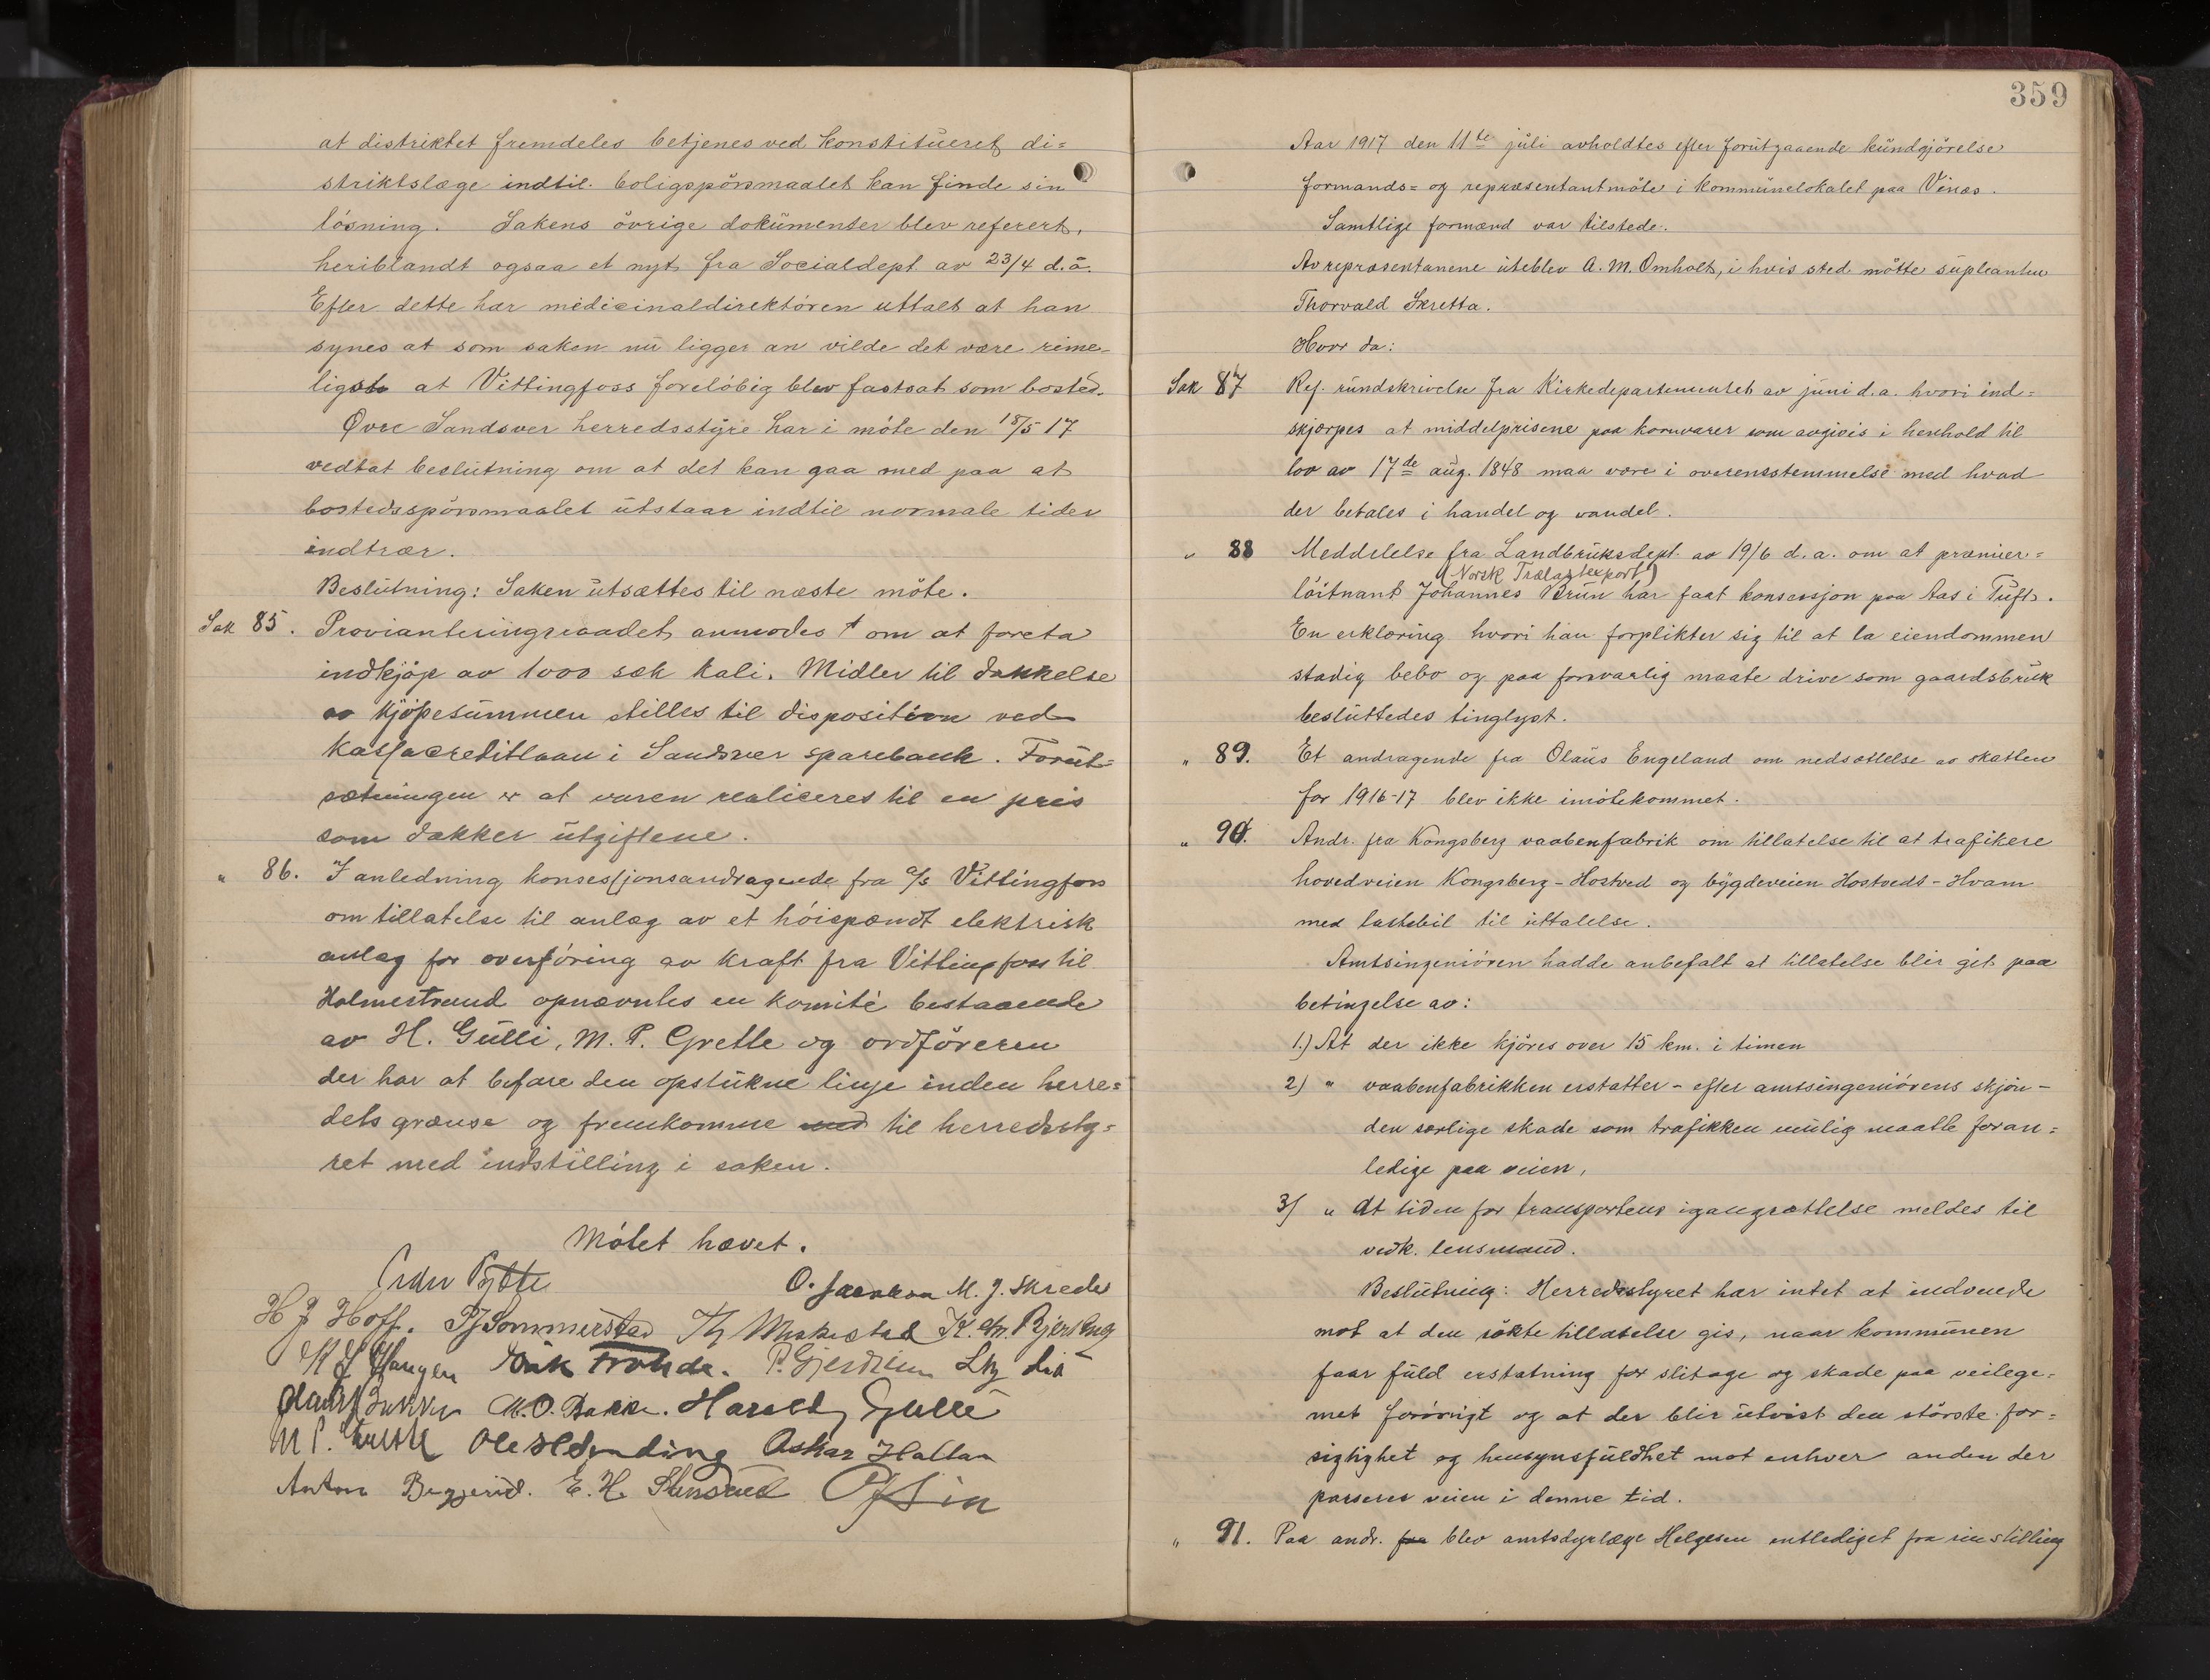 at distriktet fremdeles betjenes ved konstitueret di=
striktslæge indtil boligspörsmaalet kan finde sin
lösning. Sakens övrige dokumenter blev referert,
heriblandt ogsaa et nyt fra Socialdept av 23/4 d.å.
Efter dette har medicinaldirektören uttalt at han
synes at som saken nu ligger an vilde det være rime-
ligst at Vittingfoss forelöbig blev fastsat som bosted.
Övre Sandsver herredsstyre har i möte den 18/5 17
vedtat beslutning om at det kan gaa med paa at
bostedsspörsmaalet utstaar indtil normale tider
indtrær.
Beslutning: Saken utsættes til næste möte.
Sak 85. Provianteringsraadet anmodes om at foreta
indkjöp av 1000 sæk kali. Midler til dækkelse
av kjöpesummen stilles til disposition ved
kassacreditlaan i Sandsver sparebank. Forut=
sætningen er at varen realiceres til en pris
som dækker utgiftene.
" 86. I anledning konsessjonsandragende fra a/s Vittingfoss
om tillatelse til anlæg av et höispændt elektrisk
anlæg for overföring av kraft fra Vittingfoss til
Holmestrand opnævntes en komité bestaaende
av H. Gulli, M. P. Grette og ordföreren
der har at befare den opstukne linje inden herre=
dets grænse og fremkomme med til herredssty=
ret med indstilling i saken.
Mötet hævet.
O. Jacobsen M. J. Skreder
H J Hoff. P J Sommerstad Th Muskestad K. Chr. Bjerknes
Haugen Erik Fronde. P. Gjerdrum
M. O. Bakke. Harald Gulli
M P. Grette Ole H Sending Askar Hallan
Anton Beggerud. E. H. Stensrud O J Lia
359
Aar 1917 den 11te juli avholdtes efter forutgaaende kundgjörelse
formands= og repræsentantmöte i kommunelokalet paa Vinæs.
Samtlige formænd var tilstede.
Av repræsentanene uteblev A. M. Omholt, i hvis sted mötte supleanten
Thorvald Skretta.
Hvor da:
Sak 87 Ref. rundskrivelse fra Kirkedepartementet av juni d.a. hvori ind=
skjærpes at middelprisene paa kornvarer som avgives i henhold til
lov av 17de aug. 1848 maa være i overensstemmelse med hvad
der betales i handel og vandel.
" 88 Meddelelse fra Landbruksdept. av 19/6 d.a. om at præmier=
(Norsk Trælastexport)
löitnant Johannes Brun har faat konsessjon paa Aas i Tuft.
En erklæring hvori han forplikter sig til at la eiendommen
stadig bebo og paa forsvarlig maate drive som gaardsbruk
besluttedes tinglyst.
" 89. Et andragende fra Olaus Engeland om nedsættelse av skatten
for 1916-17 blev ikke imötekommet.
" 90. Andr. fra Kongsberg vaabenfabrik om tillatelse til at trafikere
hovedveien Kongsberg - Hostved og bygdeveien Hostvedt - Hvam
med lastebil til uttalelse.
Amtsingeniören hadde anbefalt at tillatelse blir git paa
betingelse av:
1.) At der ikke kjöres over 15 km. i timen
2) " vaabenfabrikken erstatter - efter amtsingeniörens skjön -
den særlige skade som trafikken mulig maatte foran=
ledige paa veien,
3) " At tiden for transportens igangsættelse meldes til
vedk. lensmand.
Beslutning: Herredsstyret har intet at indvende
mot at den sökte tillatelse gis, naar kommunen
faar fuld erstatning for slitage og skade paa veilege-
met forövrigt og at der blir utvist den störste for=
sigtighet og hensynsfuldhet mot enhver anden der
passerer veien i denne tid.
" 91. Paa andr. fra blev amtsdyrlæge Helgesen entlediget fra sin stilling